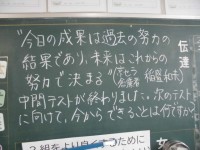 "今日の成果は過去の努力の
結果であり、未来はこれからの
努力で決まる"(京セラ
創業者 稲盛和夫)
中間テストが終わりました。次のテスト
に向けて、今からできることは何ですか
伝達
2組をより良くするために